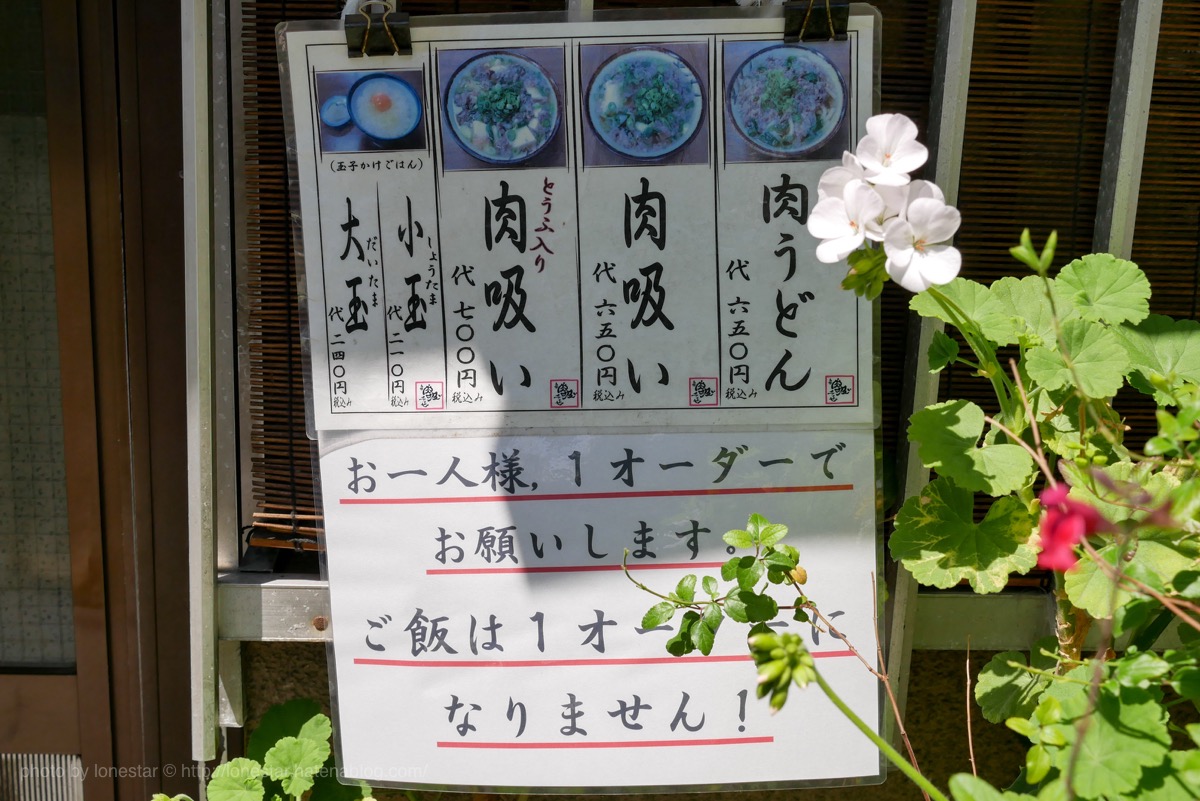 肉うどん
代 六五〇円
税込み
肉吸い
代 六五〇円
税込み
とうふ入り
肉吸い
代 七〇〇円
税込み
(玉子かけごはん)
小玉
しょうたま
代 二一〇円
税込み
大玉
だいたま
代 二四〇円
税込み
お一人様,1オーダーで
お願いします。
ご飯は1オーダーに
なりません!
photo by lonestar © http://lonestar.hatenablog.com/